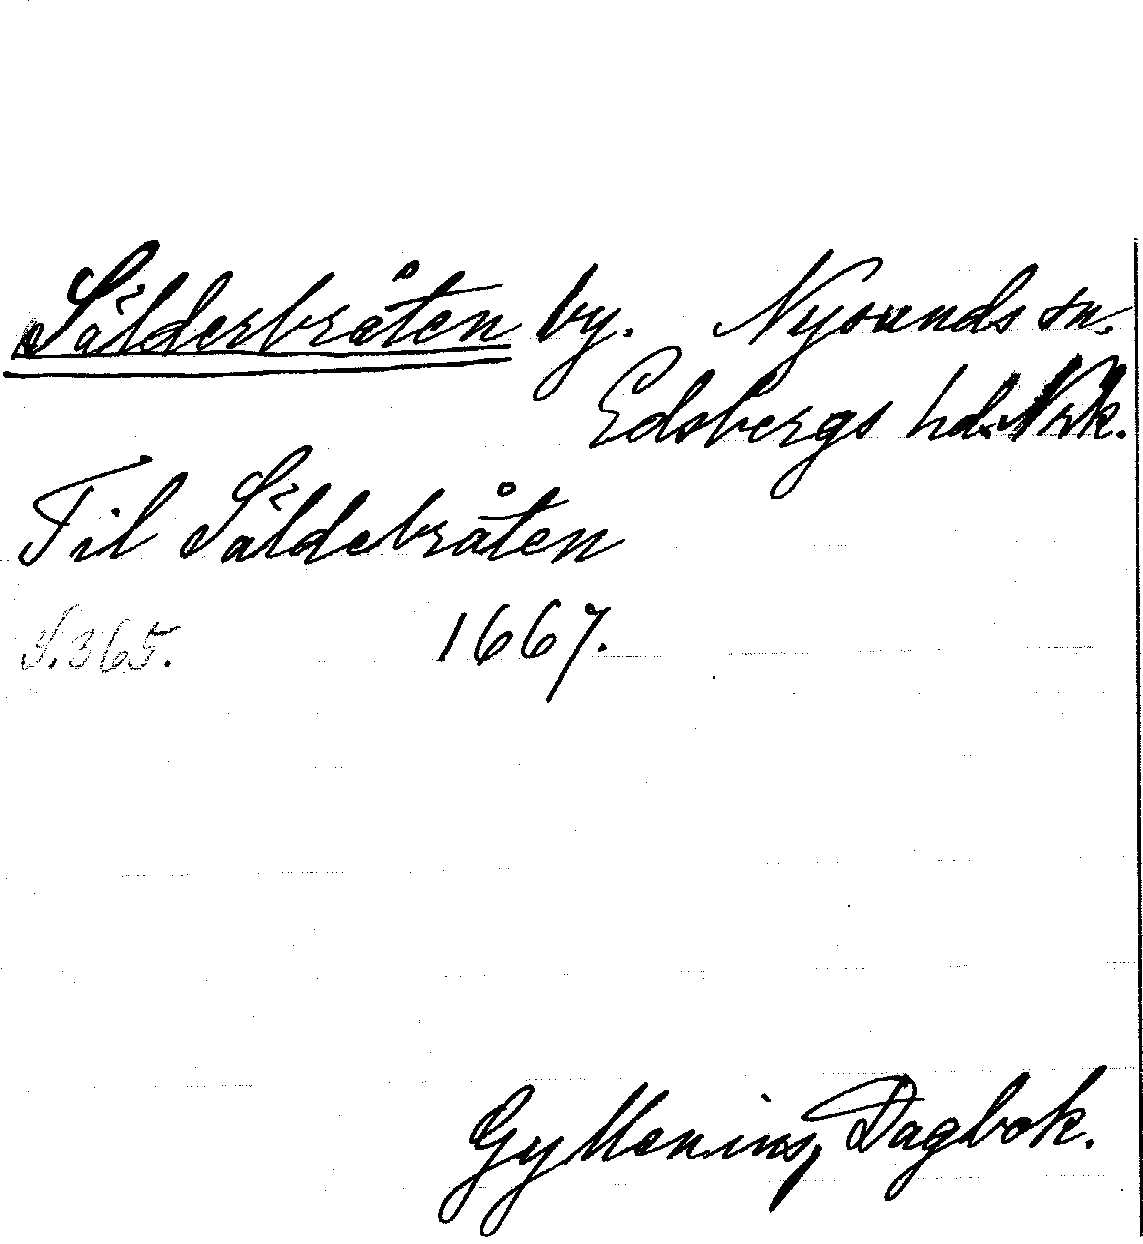 Sälderbråten by. Nysunds sn.
Edsbergs hd. Nrk.
Til Säldebråten
S. 365. 1667.
Gyllenius, Dagbok.